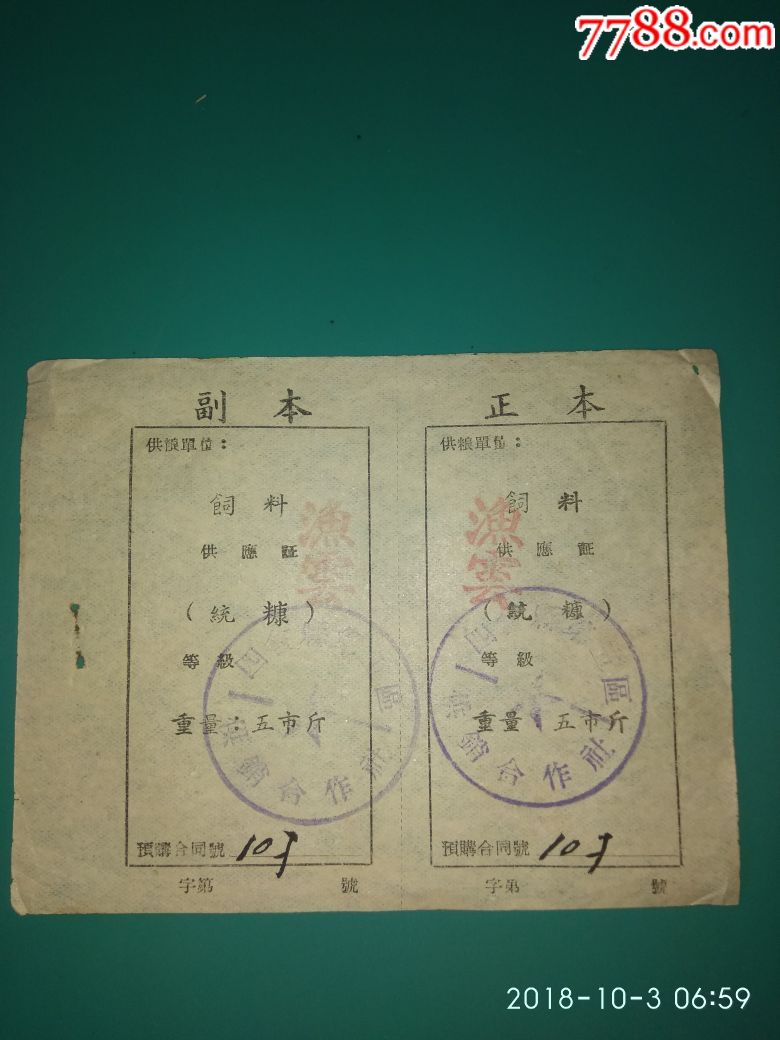 7788.com
副本
供糧單位：
飼料
供應証
（統糠）
等級
重量：五市斤
預購合同號
字第 號
漁雲
正本
供糧單位：
飼料
供應証
（統糠）
等級
重量 五市斤
預購合同號
字第 號
漁雲
區
銷合作社
區
銷合作社
2018-10-3 06:59